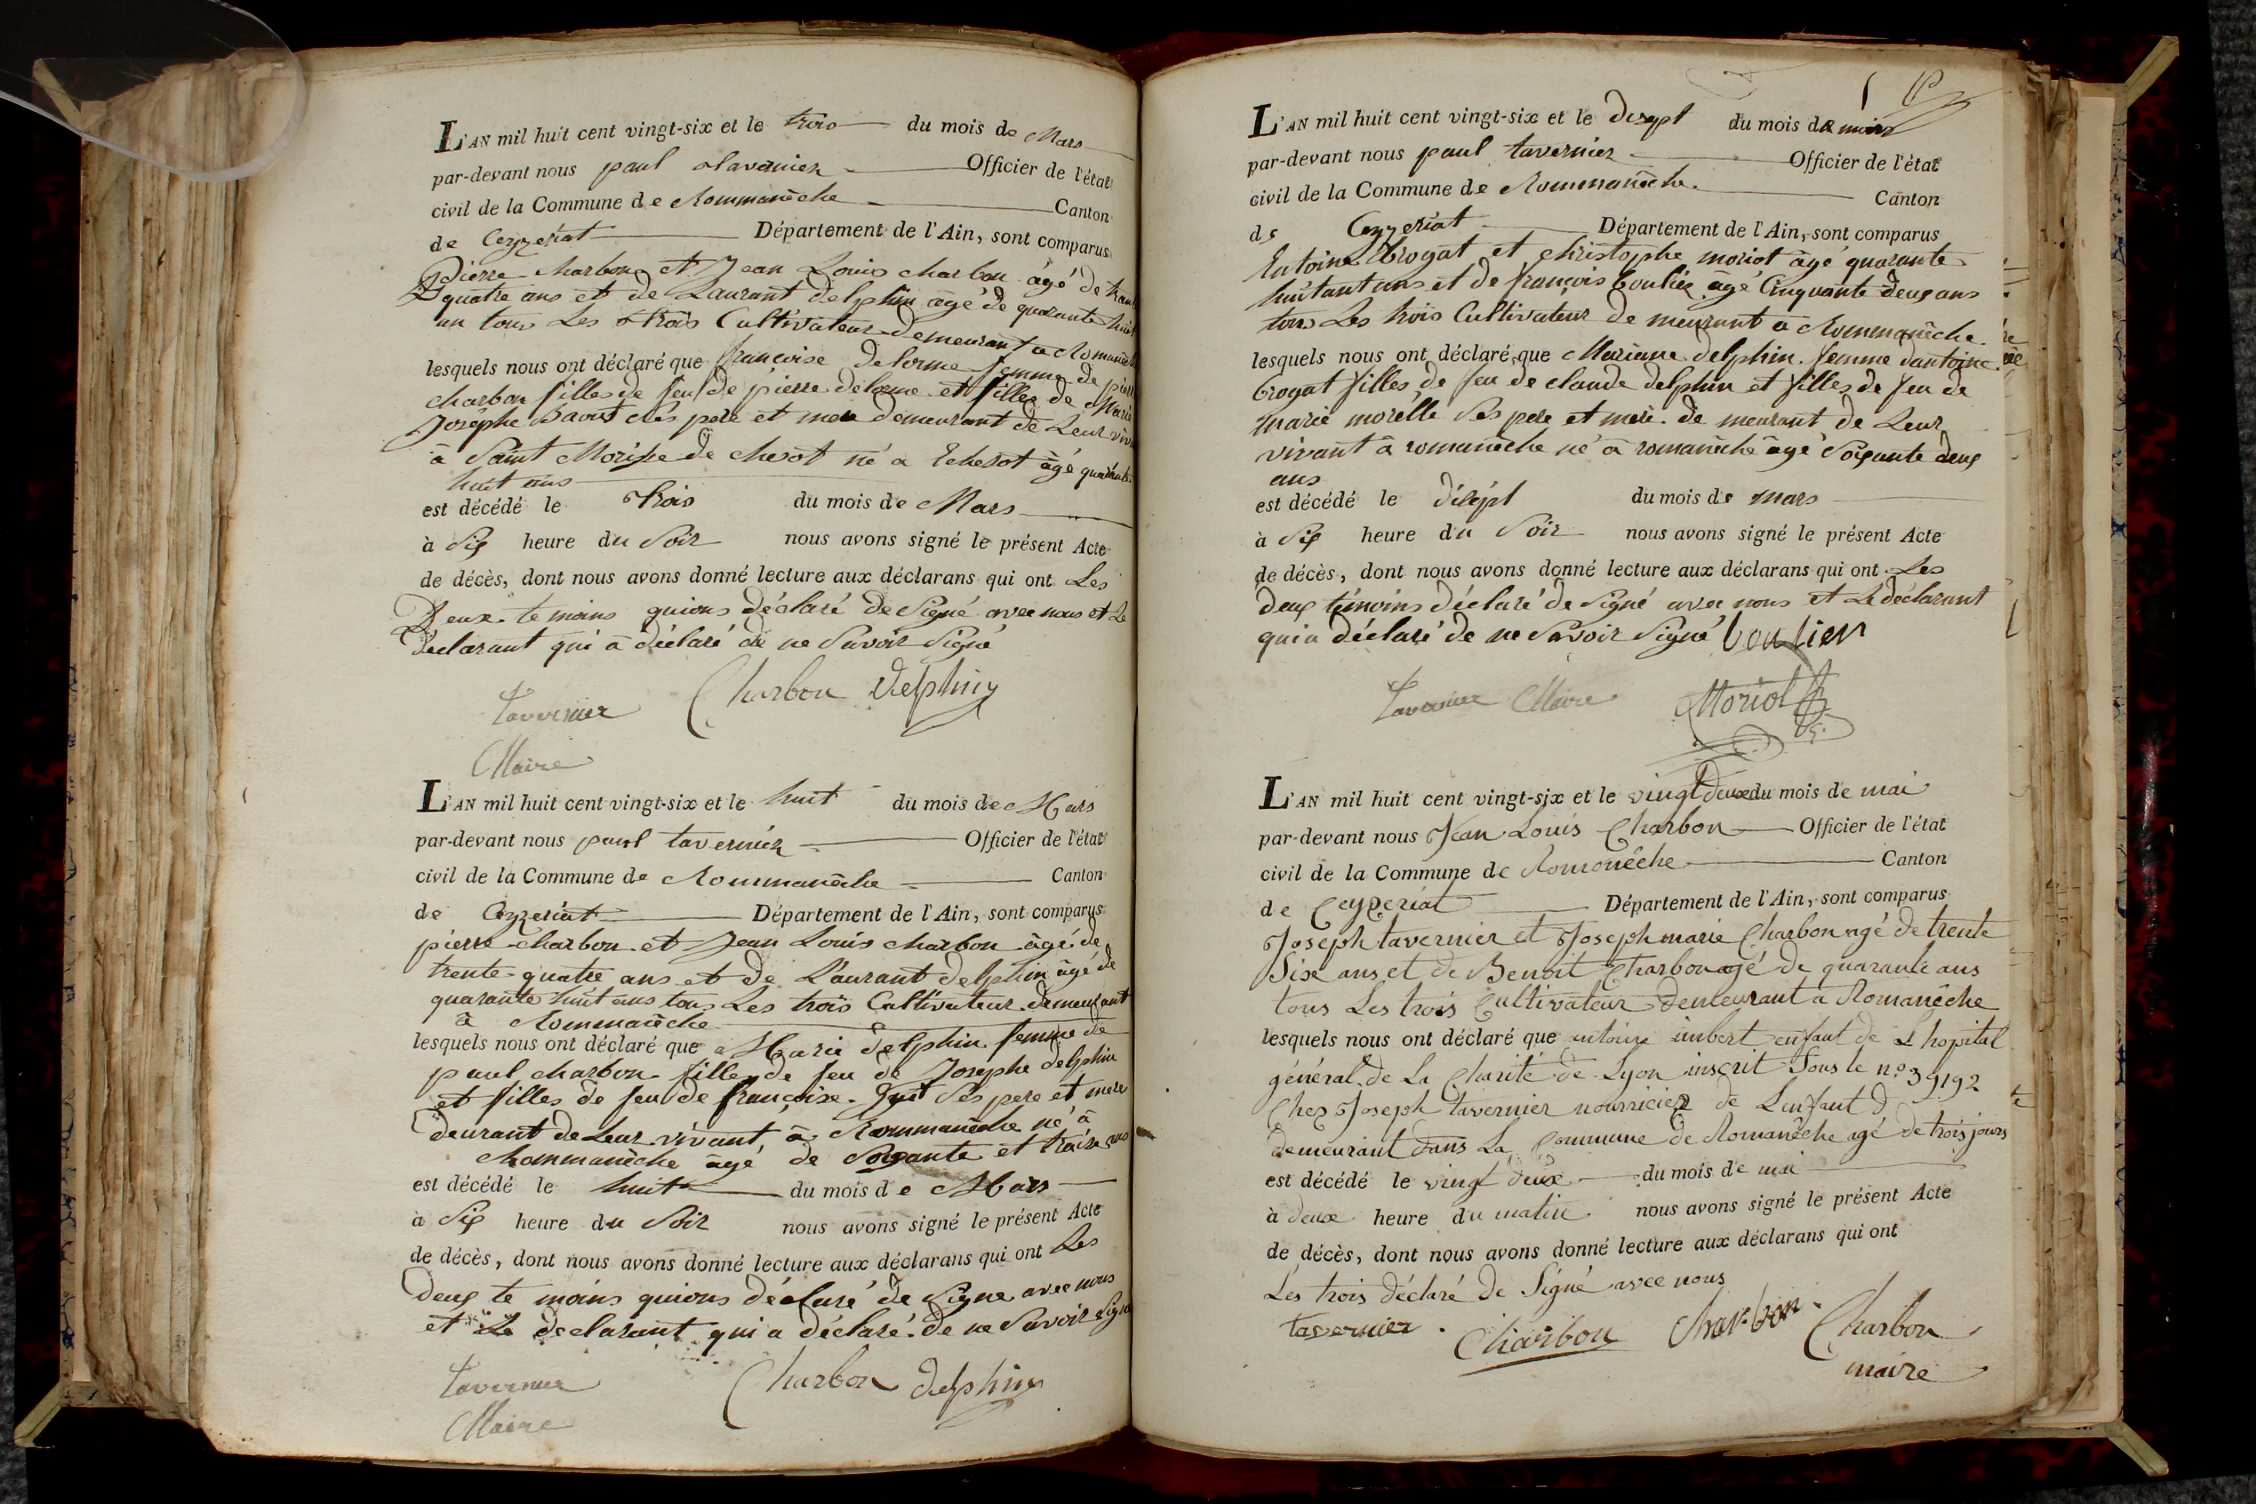 L'AN mil huit cent vingt-six et le trois du mois de Mars
par-devant nous paul tavernier Officier de l'état
civil de la Commune de Rommanêche Canton
de Ceyzeriat Département de l'Ain, sont comparus
Pierre charbon et Jean Louis charbon âgé de trante
quatre ans et de Laurant delphin âgé de quarante huit
an tous Les trois Cultivateur demeurant a Romanêche
lesquels nous ont déclaré que françoise delorme femme de pierre
charbon filles de feu de pierre delorme et filles de Marie
Josephe savat ses pere et mere demeurant de Leur vivant
à Saint Morise de chesot né a Echesot âgé quarante
huit ans
est décédé le trois du mois de Mars
à Six heure du Soir nous avons signé le présent Acte
de décès, dont nous avons donné lecture aux déclarans qui ont Les
Deux temoins quions déclaré de Signé avec nous et Le
déclarant qui a déclaré de ne Savoir Signé
tavernier Charbon delphin
Maire
L'AN mil huit cent vingt-six et le huit du mois de Mars
par-devant nous paul tavernier Officier de l'état
civil de la Commune de Rommanêche Canton
de Ceyzeriat Département de l'Ain, sont comparus
pierre charbon et Jean Louis charbon âgé de
trente quatre ans et de Laurant delphin âgé de
quarante huit ans tous Les trois Cultivateur demeurant
à Rommanêche
lesquels nous ont déclaré que Marie delphin femme de
paul charbon filles de feu de Josephe delphin
et filles de feu de françoise Ses pere et mere
deurant de Leur vivant à Rommanêche né à
Rommanêche âgé de Soixante et traise ans
est décédé le huit du mois de Mars
à Six heure du Soir nous avons signé le présent Acte
de décès, dont nous avons donné lecture aux déclarans qui ont Les
deux te moins quions déclaré de Signe avec nous
et Le declarant qui a déclaré de ne Savoir Signé
tavernier Charbon delphin
Maire
L'AN mil huit cent vingt-six et le disept du mois de mars
par-devant nous paul tavernier Officier de l'état
civil de la Commune de Rommanêche Canton
de Ceyzeriat Département de l'Ain, sont comparus
Entoine brogat et christophe moriot âgé quarante
huitant ans et de françois boulier âgé Cinquante deux ans
tous Les trois Cultivateur de meurant à Rommanêche
lesquels nous ont déclaré que Mariane delphin femme dantoine
brogat filles de feu de claude delphin et filles de feu de
marie morelle Ses pere et mere de meurant de Leur
vivant à romanêche né à romanêche âgé Soixante deux
ans
est décédé le disept du mois de mars
à Six heure du Soir nous avons signé le présent Acte
de décès, dont nous avons donné lecture aux déclarans qui ont Les
deux témoins déclaré de Signé avec nous et Le déclarant
qui a déclaré de ne Savoir Signé boulier
tavernier Maire Moriot
L'AN mil huit cent vingt-six et le vingt deux du mois de mai
par-devant nous Jean Louis Charbon Officier de l'état
civil de la Commune de Romonêche Canton
de Ceyzeriat Département de l'Ain, sont comparus
Joseph tavernier et Joseph marie Charbon agé de trente
Six ans et de Benoit Charbon agé de quarante ans
tous Les trois Cultivateur demeurant a Romanêche
lesquels nous ont déclaré que antoine imbert enfant de L'hopital
général de La Charité de Lyon inscrit Sous le n.o 39192
Chez Joseph tavernier nourricier de L'enfant d
demeurant dans La Commune de Romanêche agé de trois jours
est décédé le vingt deux du mois de mai
à deux heure du matin nous avons signé le présent Acte
de décès, dont nous avons donné lecture aux déclarans qui ont
Les trois déclaré de Signé avec nous
tavernier Charbon Charbon Charbon
maire